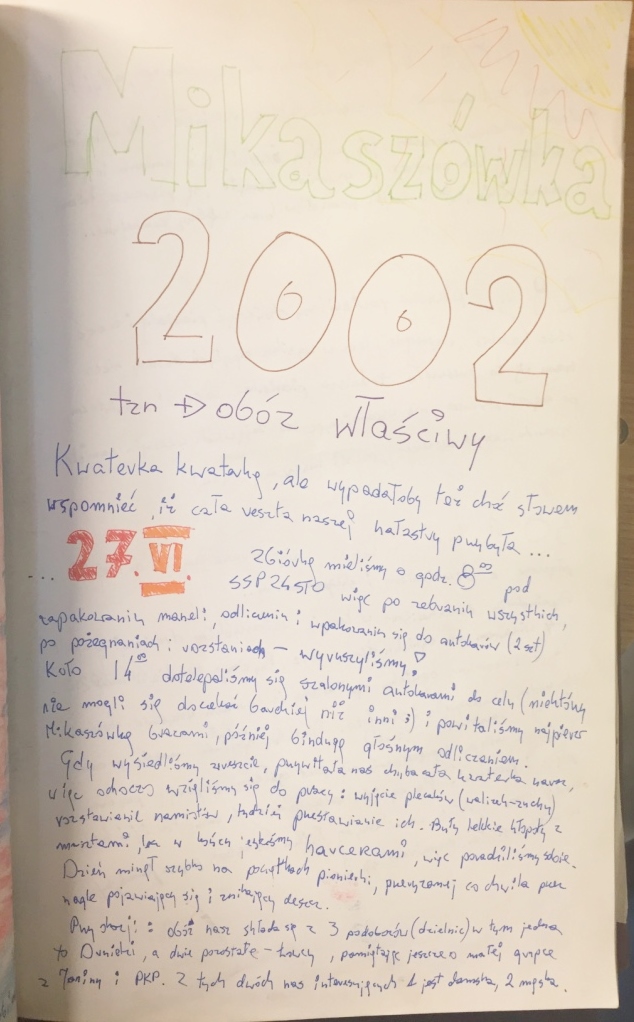 Mikaszówka
2002
tzn → obóz właściwy
Kwaterka kwaterką, ale wypadałoby też choć słowem
wspomnieć, iż cała reszta naszej hałastry przybyła ...
... 27.VI. Zbiórkę mieliśmy o godz. 8⁰⁰ pod
SSP 24 STO więc po zebraniu wszystkich,
zapakowaniu maneli, odliczeniu i wpakowaniu się do autokarów (2 szt)
po pożegnaniach i rozstaniach – wyruszyliśmy!
Koło 14⁰⁰ dotelepaliśmy się szalonymi autokarami do celu (niektórzy
nie mogli się doczekać bardziej niż inni ;) i powitaliśmy najpierw
Mikaszówkę brawami, później bindugę głośnym odliczaniem.
Gdy wysiedliśmy wreszcie, przywitała nas chyba cała kwaterka naraz,
więc ochoczo wzięliśmy się do pracy: wyjęcie plecaków (walizek-zuchy)
rozstawianie namiotów, tudzież przestawianie ich. Były lekkie kłopoty z
masztami, lecz w końcu jesteśmy harcerami, więc poradziliśmy sobie.
Dzień minął szybko na początkach pionierki, przerywanej co chwila przez
nagle pojawiający się i znikający deszcz.
Przy okazji: obóz nasz składa się z 3 podobozów (dzielnic) w tym jedna
to Dunieki, a dwie pozostałe – Łowcy, pamiętając jeszcze o małej grupce
z Janiny i PKP. Z tych dwóch nas interesujących 1 jest damska, 2 męska.